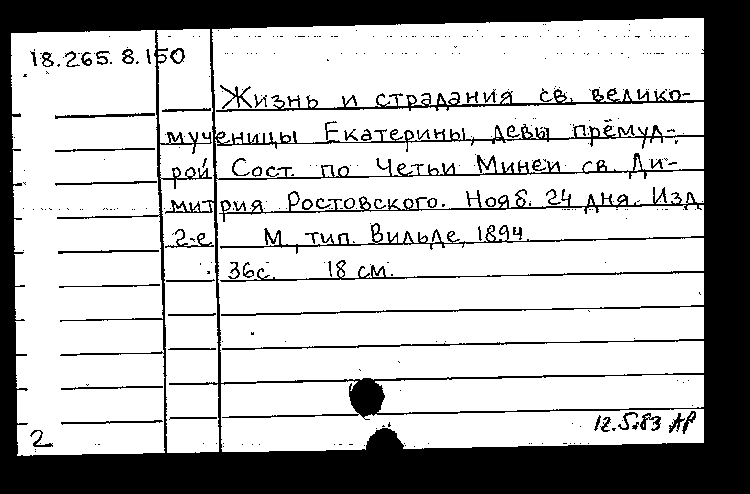 18.265.8.150
Жизнь и страдания св. велико-
мученицы Екатерины, девы премуд-
рой Сост. по Четьи Минеи св. Ди-
митрия Ростовского. Нояб. 24 дня. Изд
2-е М., тип. Вильде, 1894.
36с. 18 см.
2
12.5.83 АР